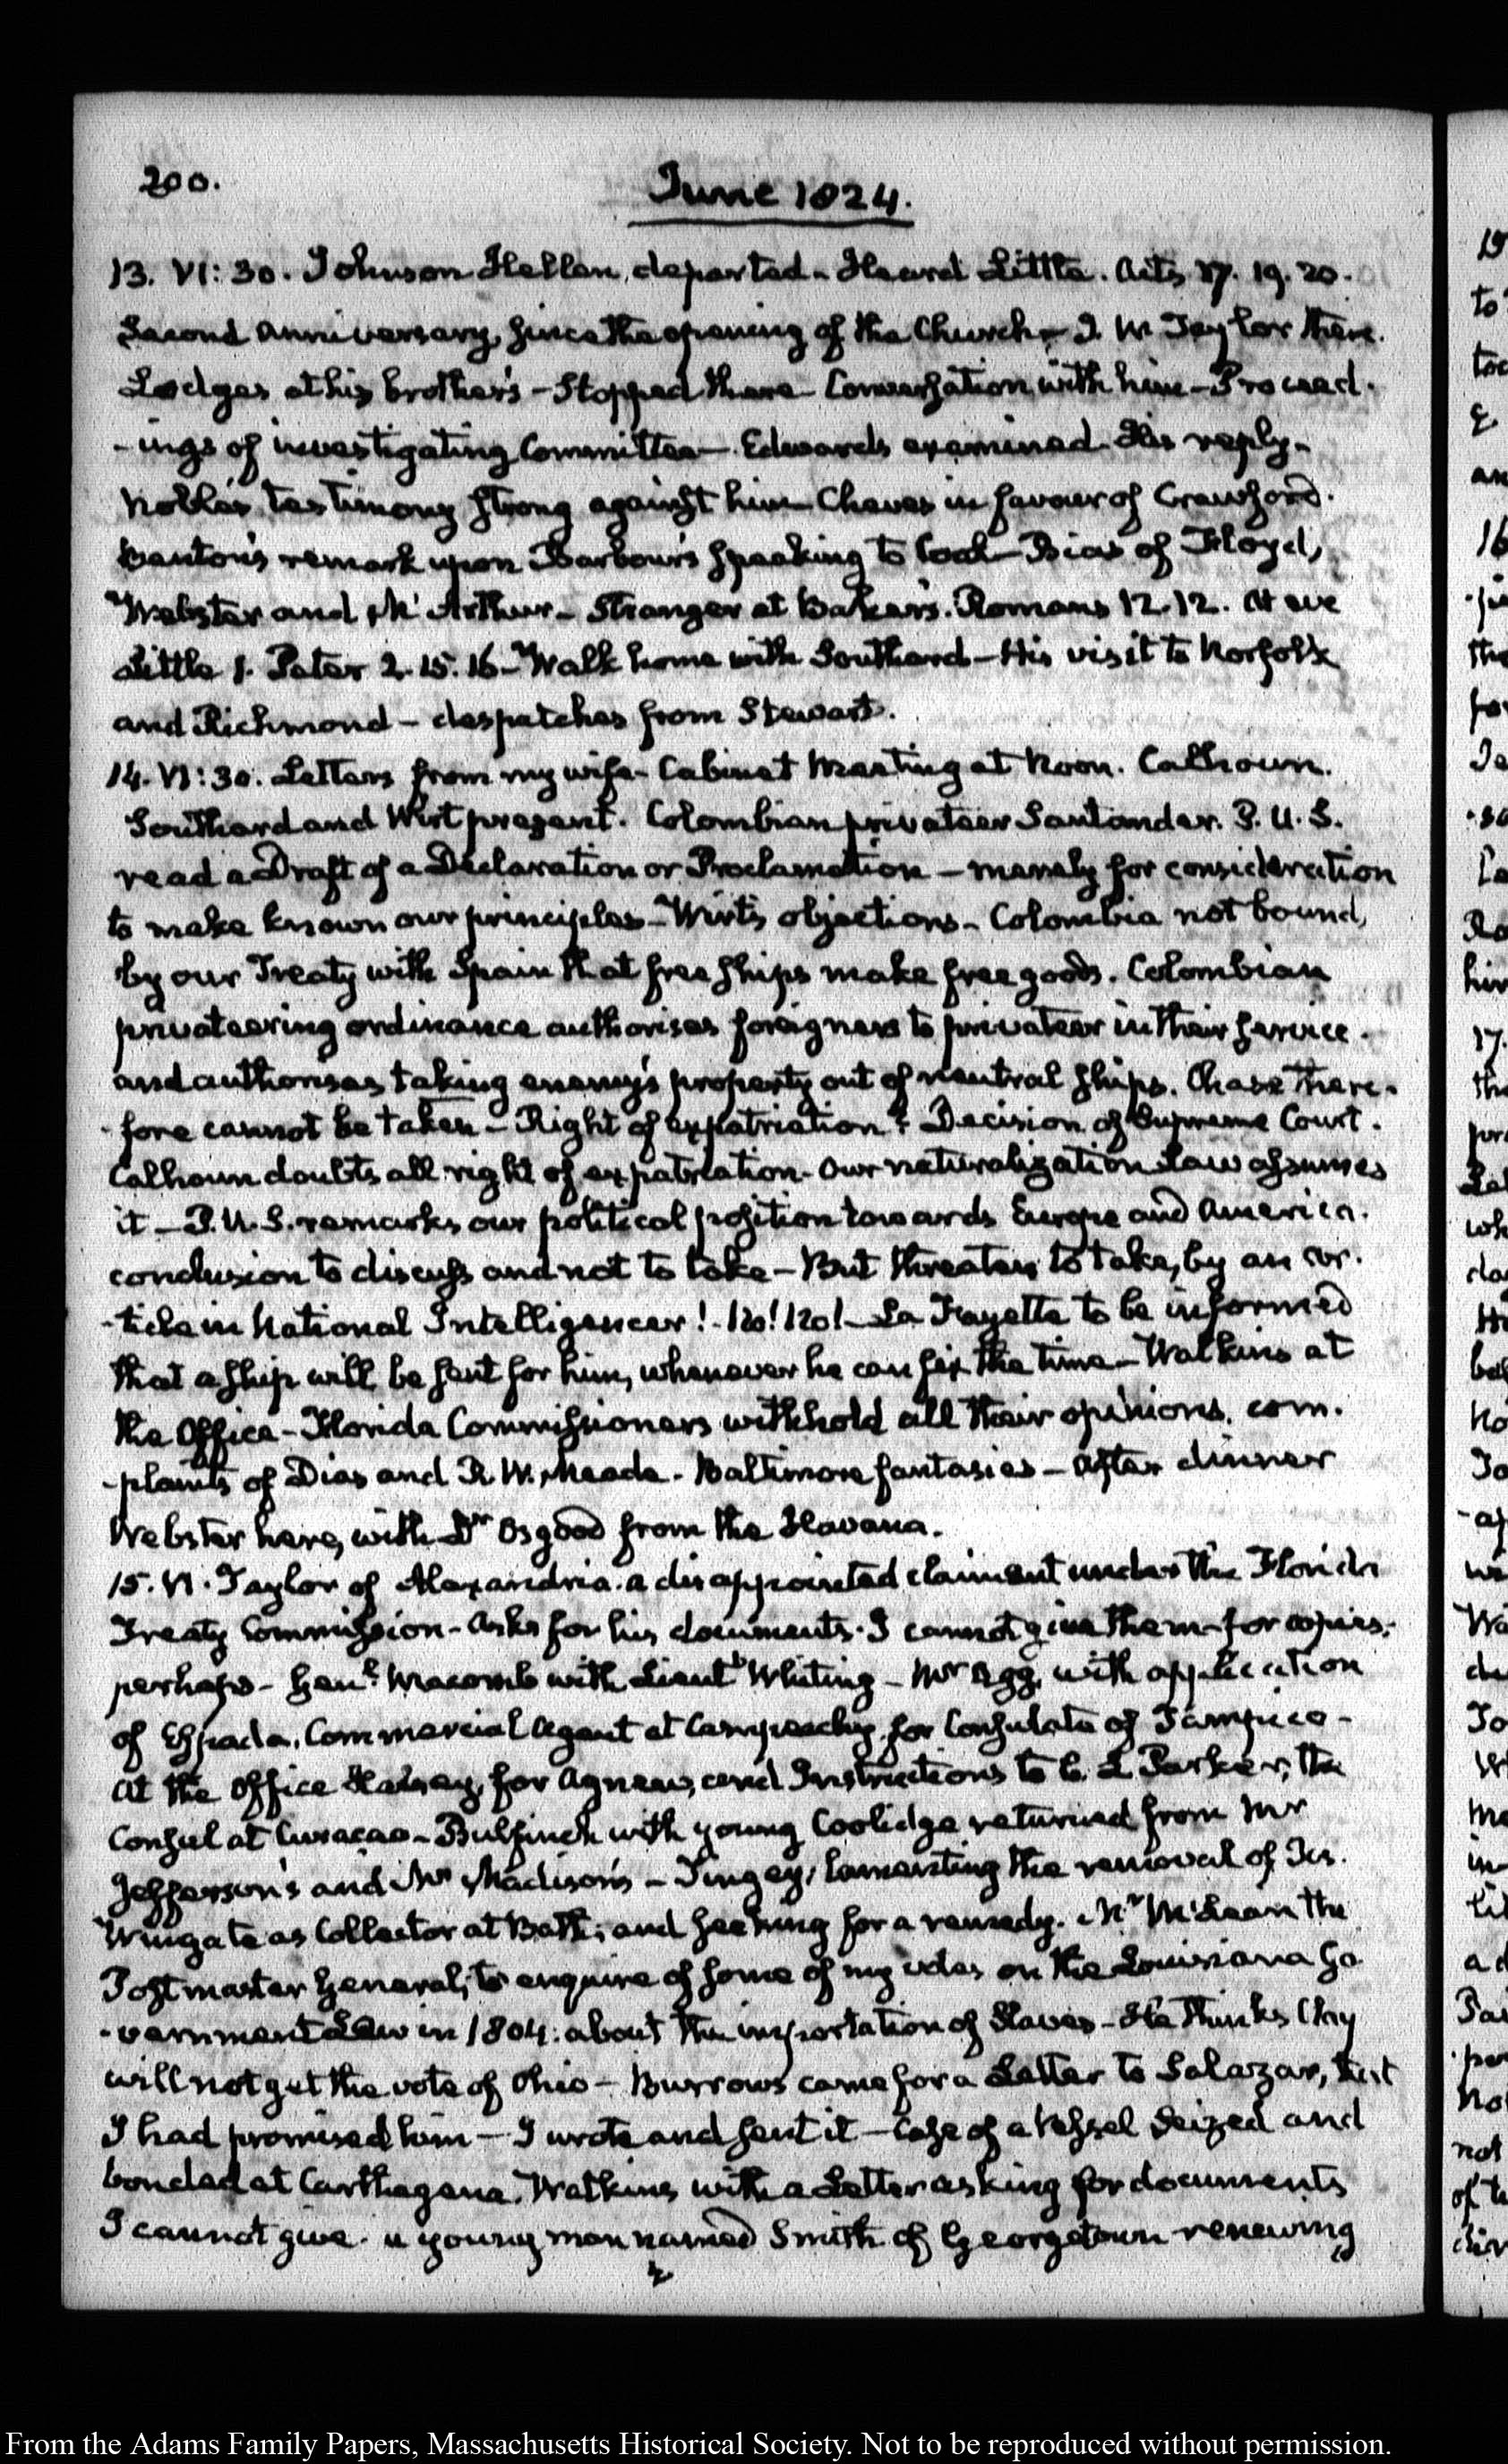 200.
June 1824.
13. VI: 30. Johnson Hellen, departed. Heard Little. Acts 17. 19. 20.
Second anniversary, since the opening of the Church – J. W. Taylor there.
Lodges at his brother's – Stopped there – Conversation with him – Proceed-
-ings of investigating Committee – Edwards examined. His reply –
Noble's testimony strong against him – Cheves in favour of Crawford.
Benton's remark upon Barbour's speaking to Cook – Bias of Floyd,
Webster and McArthur – Stranger at Baker's. Romans 12. 12. At eve
Little 1. Peter 2. 15. 16 – Walk home with Southard – His visit to Norfolk
and Richmond – despatches from Stewart.
14. VI: 30. Letters from my wife – Cabinet Meeting at Noon. Calhoun.
Southard and Wirt present. Colombian privateer Santander. P. U. S.
read a Draft of a Declaration or Proclamation – merely for consideration
to make known our principles – Wirt's objections – Colombia not bound,
by our Treaty with Spain that free ships make free goods. Colombian
privateering ordinance authorises foreigners to privateer in their service.
and authorises taking enemy's property out of neutral ships. Chase there-
-fore cannot be taken – Right of expatriation? Decision of Supreme Court.
Calhoun doubts all right of expatriation – Our naturalization Law assumes
it – P. U. S. remarks our political position towards Europe and America.
conclusion to discuss and not to take – But threaten to take, by an ar-
-ticle in National Intelligencer! – No! No! – La Fayette to be informed
that a ship will be sent for him, whenever he can fix the time – Watkins at
the Office – Florida Commissioners withhold all their opinions. com-
-plaints of Dias and R. W. Meade. Baltimore fantasies – After dinner
Webster here, with Dr Osgood from the Havana.
15. VI. Taylor of Alexandria. a disappointed claimant under the Florida
Treaty Commission – Asks for his documents. I cannot give them – for copies,
perhaps – Genl. Macomb with Lieutt. Whiting – Mr Agg, with application
of Espada, Commercial Agent at Campeachy, for Consulate of Tampico –
At the Office Halsey, for Agnew, and Instructions to C. L. Parker, the
Consul at Curacao – Bulfinch with young Coolidge returned from Mr
Jefferson's and Mr Madison's – Tingey, lamenting the removal of Jos.
Wingate as Collector at Bath; and seeking for a remedy. Mr McLean the
Postmaster General, to enquire of some of my votes on the Louisiana Go-
-vernment Law in 1804: about the importation of Slaves – He thinks Clay
will not get the vote of Ohio – Burrows came for a Letter to Salazar, that
I had promised him – I wrote and sent it – Case of a Vessel seized and
bonded at Carthagena. Watkins with a Letter asking for documents
I cannot give. A young man named Smith of Georgetown renewing
From the Adams Family Papers, Massachusetts Historical Society. Not to be reproduced without permission.